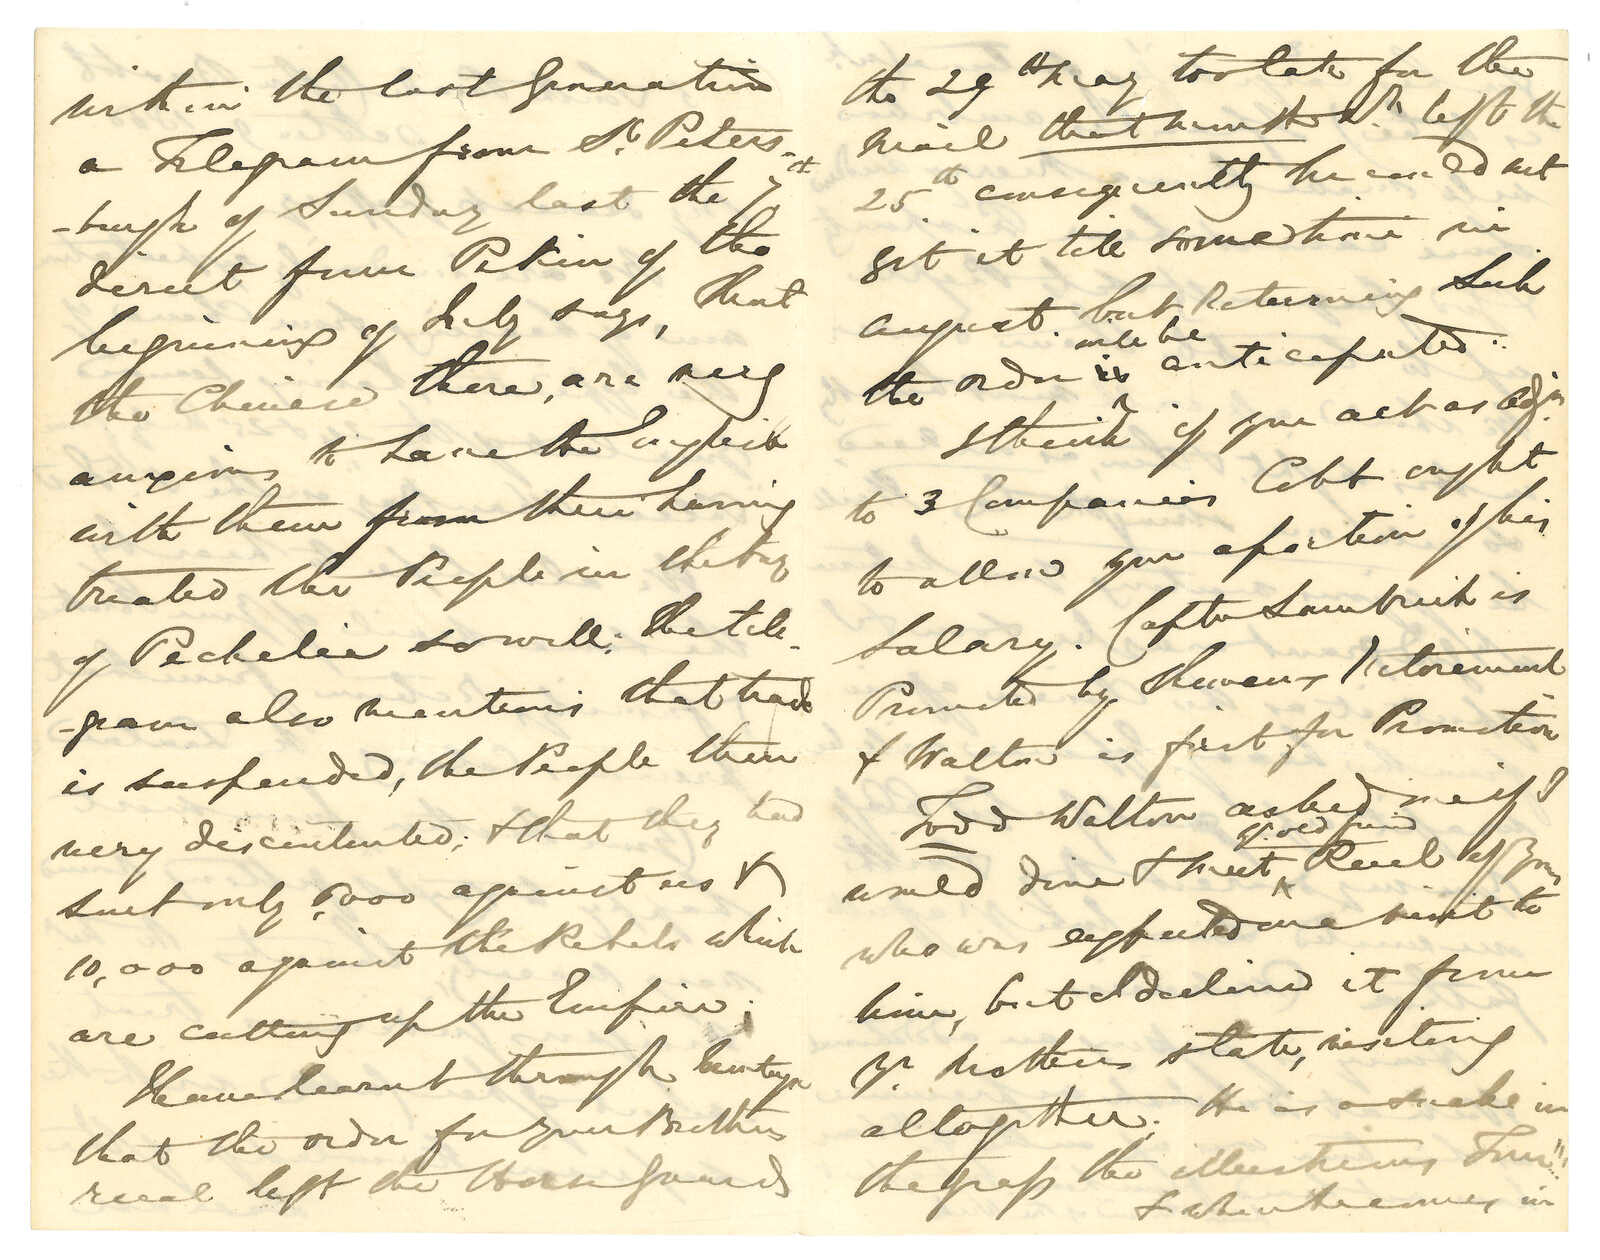 within the last Generation
a Telegram from St. Peters-
-burgh of Sunday last the 7th
direct from Pekin of the
beginning of July says, that
the Chinese there, are very
anxious to have the English
with them from their having
treated the People in the bay
of Pechelie so well; the tele-
-gram also mentions that trade
is suspended, the People then
very discontented; & that they had
sent only 5000 against us &
10,000 against the Rebels which
are cutting up the Empire;
Have learnt through
that the order for your Brothers
recal left the Horse Guards
the 29th May too late for the
mail that month wh. left the
25th consequently he could not
get it till sometime in
August. but returning Sick
the order will be anticipated.
I think if you act as Adj
to 3 Companies Cobb ought
to allow you a portion of his
Salary. Captn Lambrick is
Promoted by Retirement
& Walton is first for Promotion
Todd Walton asked me if I
would dine & meet an old friend Reed of yours
who was expected on a visit to
him, but I declined it from
yr. Mothers state, visiting
altogether; He is a snake in
the grass the illustrious
& when he comes in